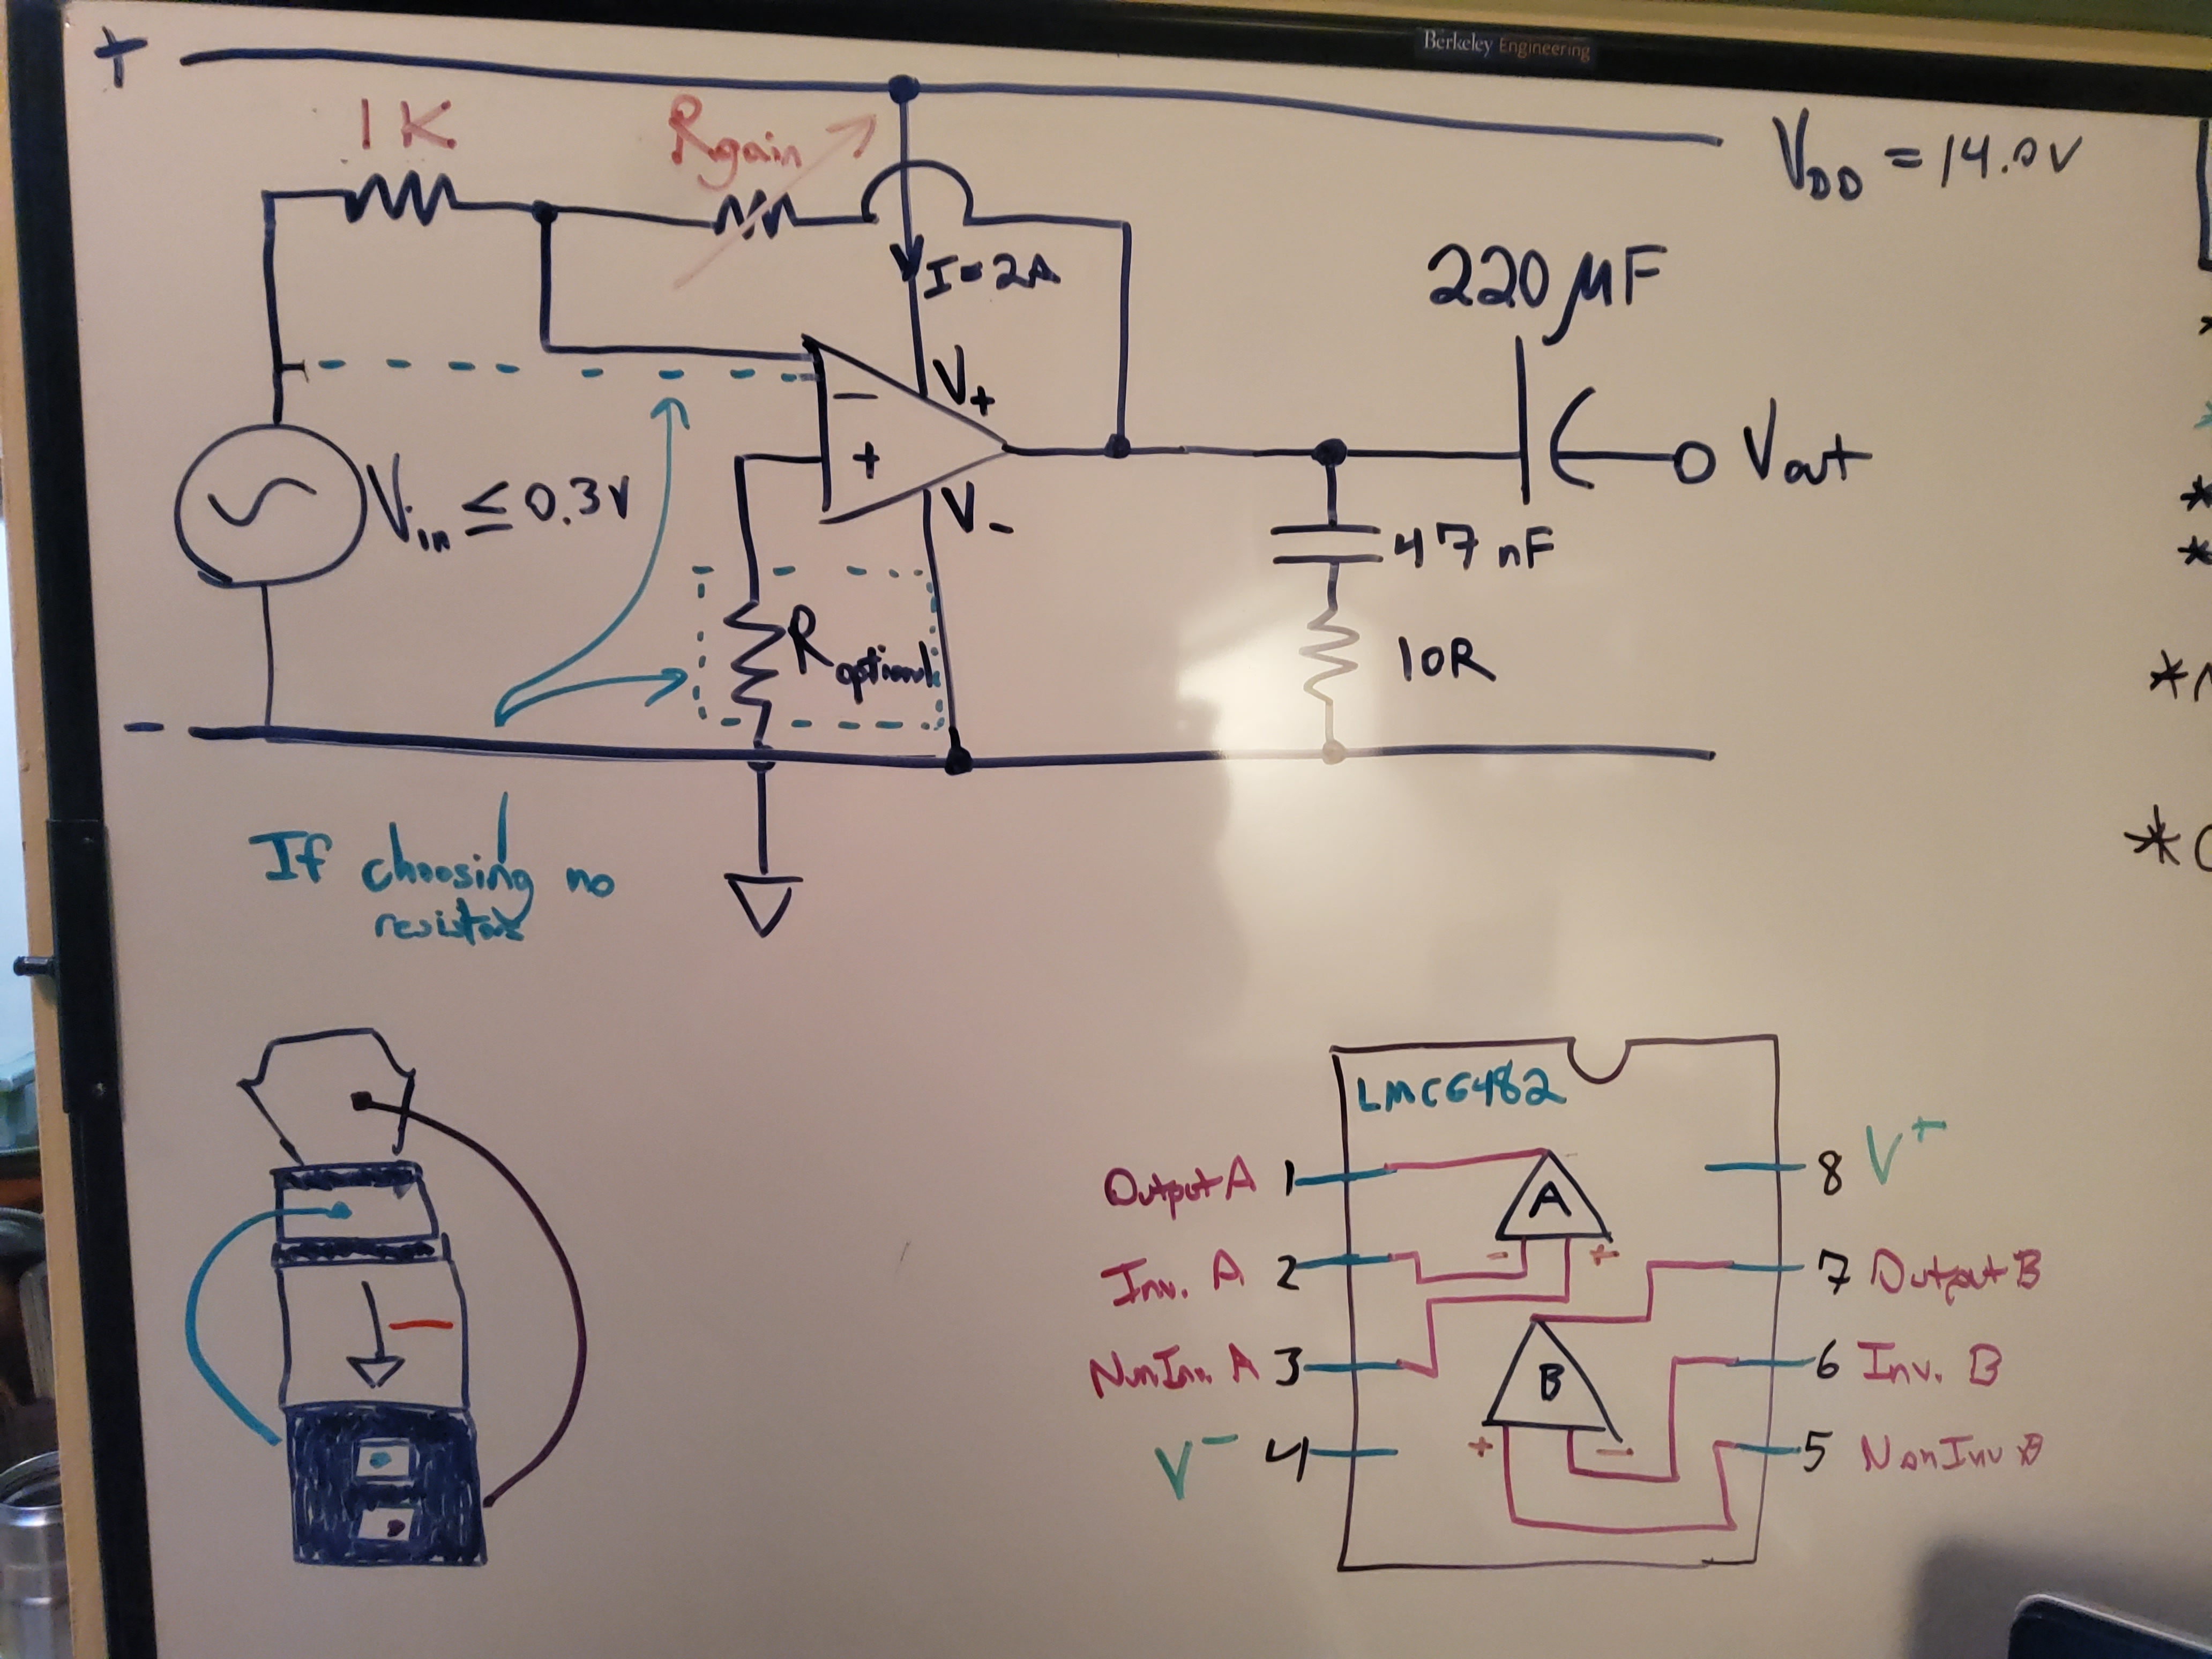 Berkeley Engineering
+
1K
Rgain
VDD = 14.0V
I = 2A
220 μF
V+
−
+
Vin ≤ 0.3V
Vout
V-
47 nF
Roptional
10R
-
If choosing no
resistors
LMC6482
Output A 1
A
8 V+
Inv. A 2
- +
7 Output B
NonInv. A 3
B
6 Inv. B
V- 4
+ −
5 NonInv B
*
*
*
*
*